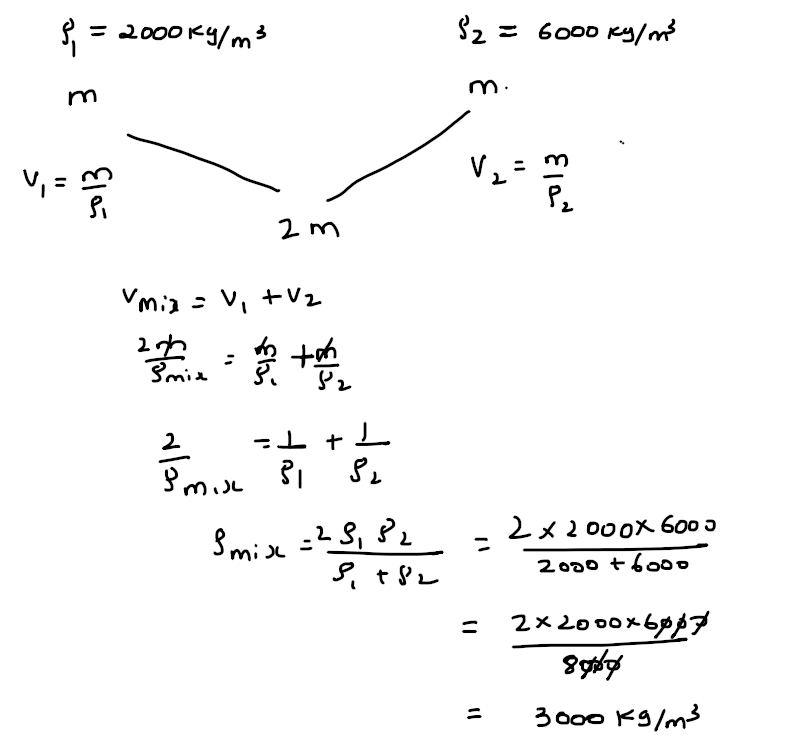 ρ₁ = 2000 Kg/m³   ρ₂ = 6000 Kg/m³
m   m.
V₁ = m/ρ₁   V₂ = m/ρ₂
2m
Vmix = V₁ + V₂
2m/ρmix = m/ρ₁ + m/ρ₂
2/ρmix = 1/ρ₁ + 1/ρ₂
ρmix = 2ρ₁ρ₂/ρ₁ + ρ₂ = 2 × 2000 × 6000/2000 + 6000
= 2 × 2000 × 6000/8000
= 3000 Kg/m³